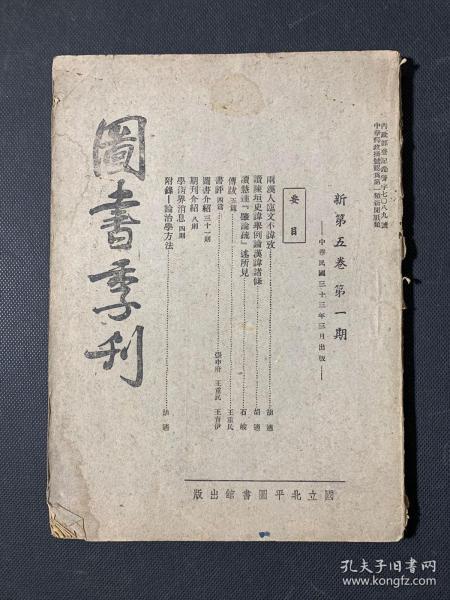 內政部登記證警字七〇八九號
中華郵政掛號認為第一類新聞紙類
新第五卷第一期
—中華民國三十三年三月出版—
要目
兩漢人臨文不諱攷 胡適
讀陳垣史諱舉例論漢諱諸條 胡適
讀慧達「肇論疏」述所見 石峻
傳跋 五篇 王重民
書評 四篇 張申府 王重民 王育伊
圖書介紹 三十一則
期刊介紹 八則
學術界消息 四則
附錄—論治學方法 胡適
圖書季刊
國立北平圖書館出版
孔夫子旧书网
www.kongfz.com